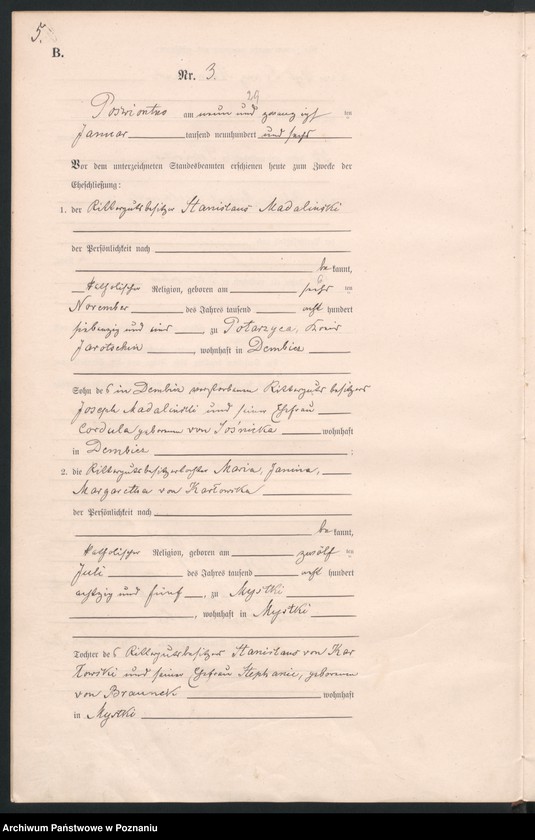 5.
B.
Nr. 3.
29
Poswiontno am neun und zwanzigsten
Januar tausend neunhundert und sechs
Vor dem unterzeichneten Standesbeamten erschienen heute zum Zwecke der
Eheschließung:
1. der Rittergutsbesitzer Stanislaus Madalinski
der Persönlichkeit nach
be kannt,
katholischer Religion, geboren am sechs ten
November des Jahres tausend acht hundert
siebenzig und eins, zu Potarzyca, Kreis
Jarotschin, wohnhaft in Dembicz
Sohn des in Dembicz verstorbenen Rittergutsbesitzers
Joseph Madalinski und seiner Ehefrau
Cordula geborenen von Sośnicka wohnhaft
in Dembicz ;
2. die Rittergutsbesitzertochter Maria, Janina,
Margaretha von Karłowska
der Persönlichkeit nach
be kannt,
katholischer Religion, geboren am zwölf ten
Juli des Jahres tausend acht hundert
achtzig und fünf, zu Mystki
, wohnhaft in Mystki
Tochter des Rittergutsbesitzer Stanislaus von Kar
łowski und seiner Ehefrau Stephanie, geborenen
von Brauneck wohnhaft
in Mystki
Archiwum Państwowe w Poznaniu